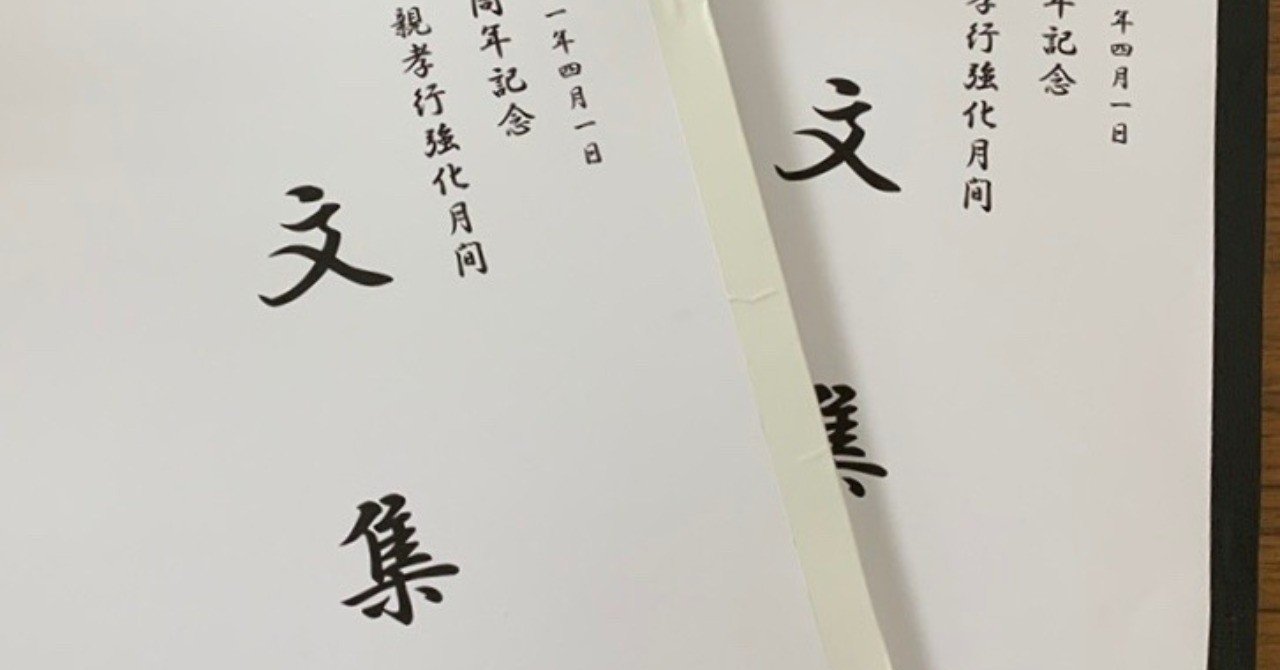 年四月一日
年記念
行強化月间
文
集
一年四月一日
周年記念
親孝行強化月间
文
集